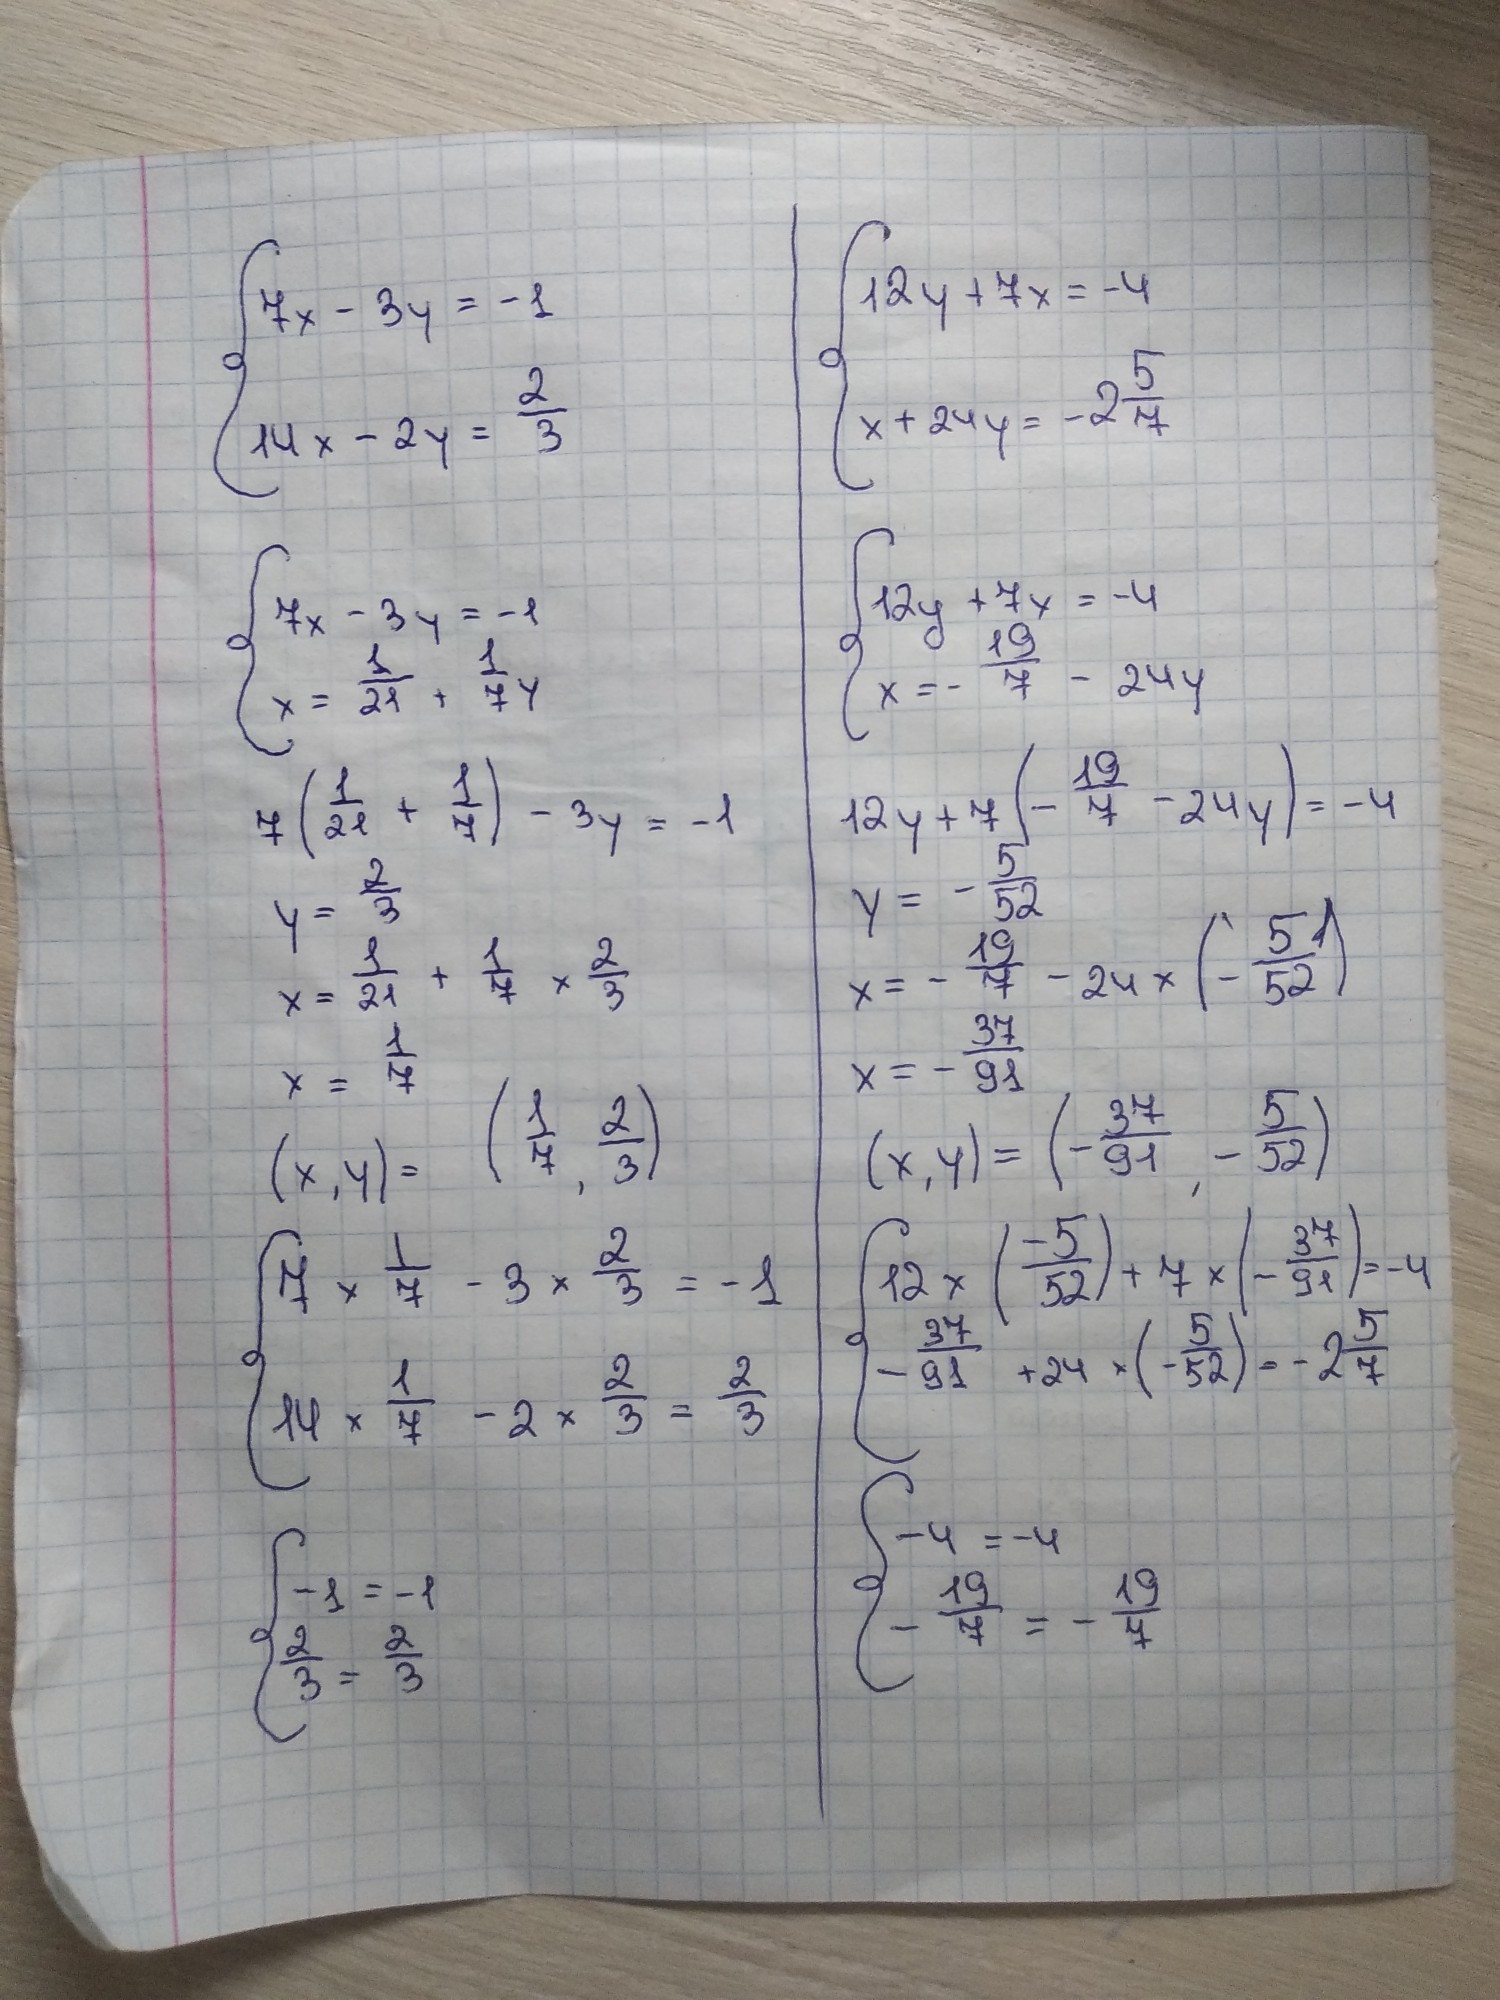 7x - 3y = -1
14x - 2y = 2/3
7x - 3y = -1
x = 1/21 + 1/7y
7(1/21 + 1/7) - 3y = -1
y = 2/3
x = 1/21 + 1/7 × 2/3
x = 1/7
(x, y) = (1/7, 2/3)
7 × 1/7 - 3 × 2/3 = -1
14 × 1/7 - 2 × 2/3 = 2/3
-1 = -1
2/3 = 2/3
12y + 7x = -4
x + 24y = -2 5/7
12y + 7x = -4
x = - 19/7 - 24y
12y + 7(- 19/7 - 24y) = -4
y = - 5/52
x = - 19/7 - 24 × (- 5/52)
x = - 37/91
(x, y) = (- 37/91, - 5/52)
12 × (-5/52) + 7 × (- 37/91) = -4
- 37/91 + 24 × (- 5/52) = -2 5/7
-4 = -4
- 19/7 = - 19/7